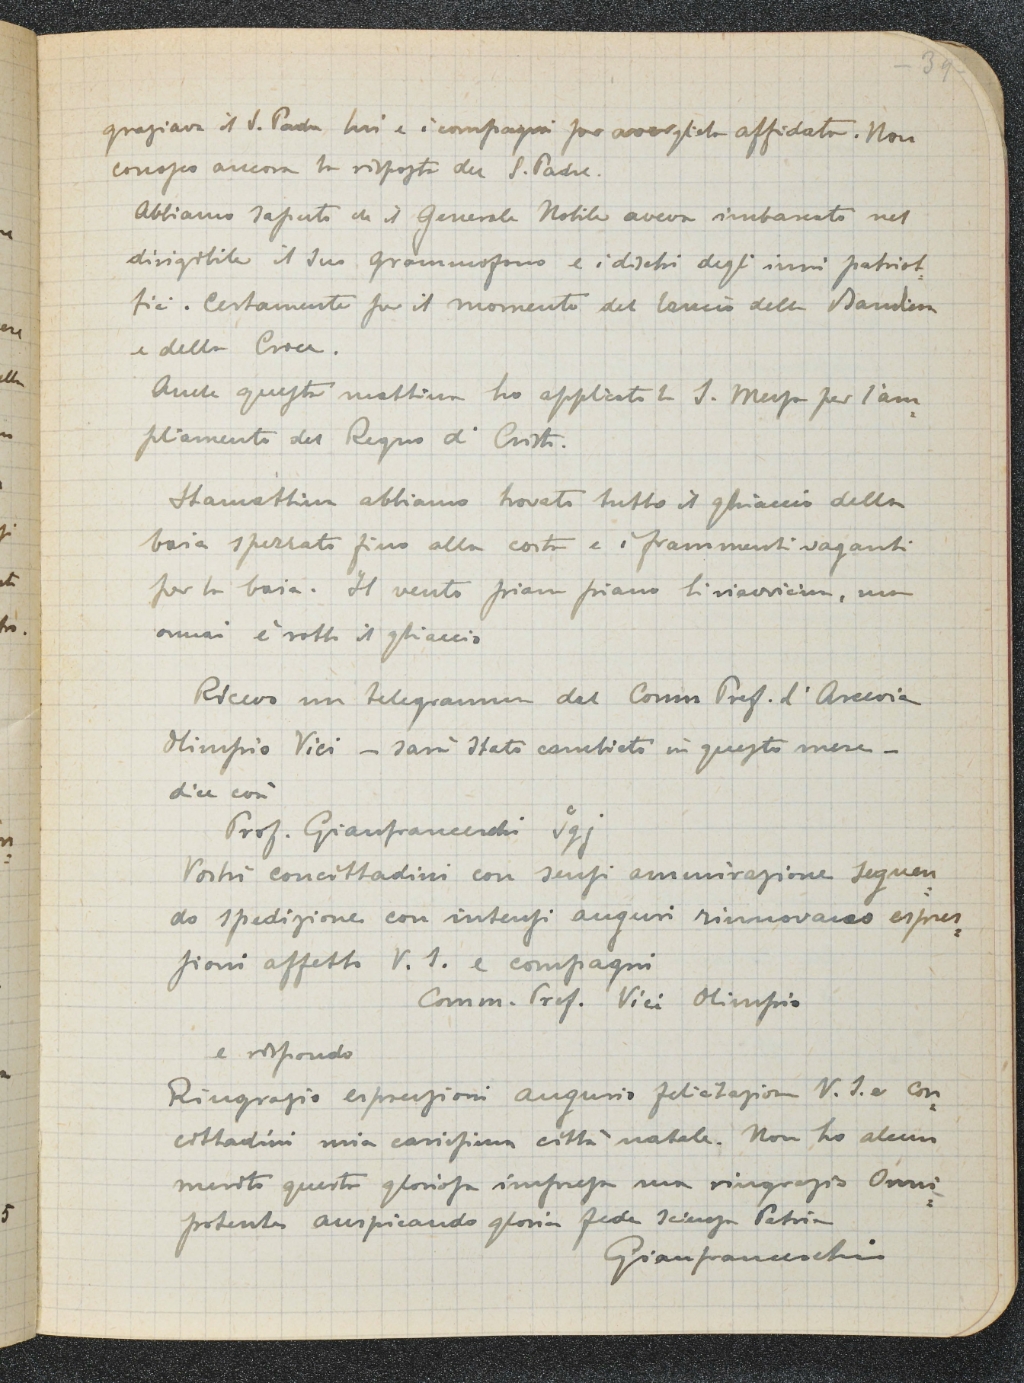 - 39 -
graziava il S. Padre lui e i compagni per avergliela affidata. Non
conosco ancora la risposta del S. Padre.
Abbiamo saputo che il Generale Nobile aveva imbarcato nel
dirigibile il suo grammofono e i dischi degli inni patriot=
tici. Certamente per il momento del lancio della Bandiera
e della Croce.
Anche questa mattina ho applicato la S. Messa per l'am=
pliamento del Regno di Cristo.
Stamattina abbiamo trovato tutto il ghiaccio della
baia spezzato fino alla costa e i frammenti vaganti
per la baia. Il vento piano piano li riavvicina, ma
ormai è rotto il ghiaccio
Ricevo un telegramma dal Comm Pref. d'Arcevia
Olimpio Vici - sarà stato cambiato in questo mese -
dice così
Prof. Gianfranceschi
Vostri concittadini con sensi ammirazione seguen=
do spedizione con intensi auguri rinnovano espres=
sioni affetto V. S. e compagni
Comm. Pref. Vici Olimpio
e rispondo
Ringrazio espressioni augurio felicitazioni V. S. e con=
cittadini mia carissima città natale. Non ho alcun
merito questa gloriosa impresa ma ringrazio Onni=
potente auspicando gloria fede scienza Patria
Gianfranceschi